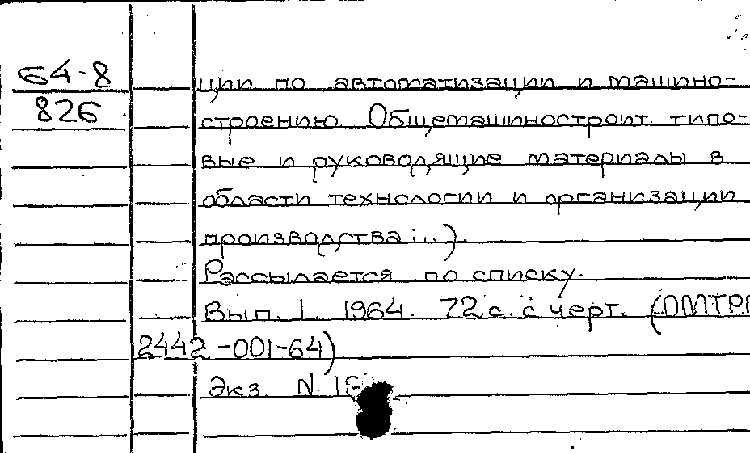 64-8
826
ции по автоматизации и машино-
строению. Общемашиностроит. типо-
вые и руководящие материалы в
области технологии и организации
производства...).
Рассылается по списку.
Вып. 1. 1964. 72 с. с черт. (ОМТРМ
2442-001-64)
Экз. N